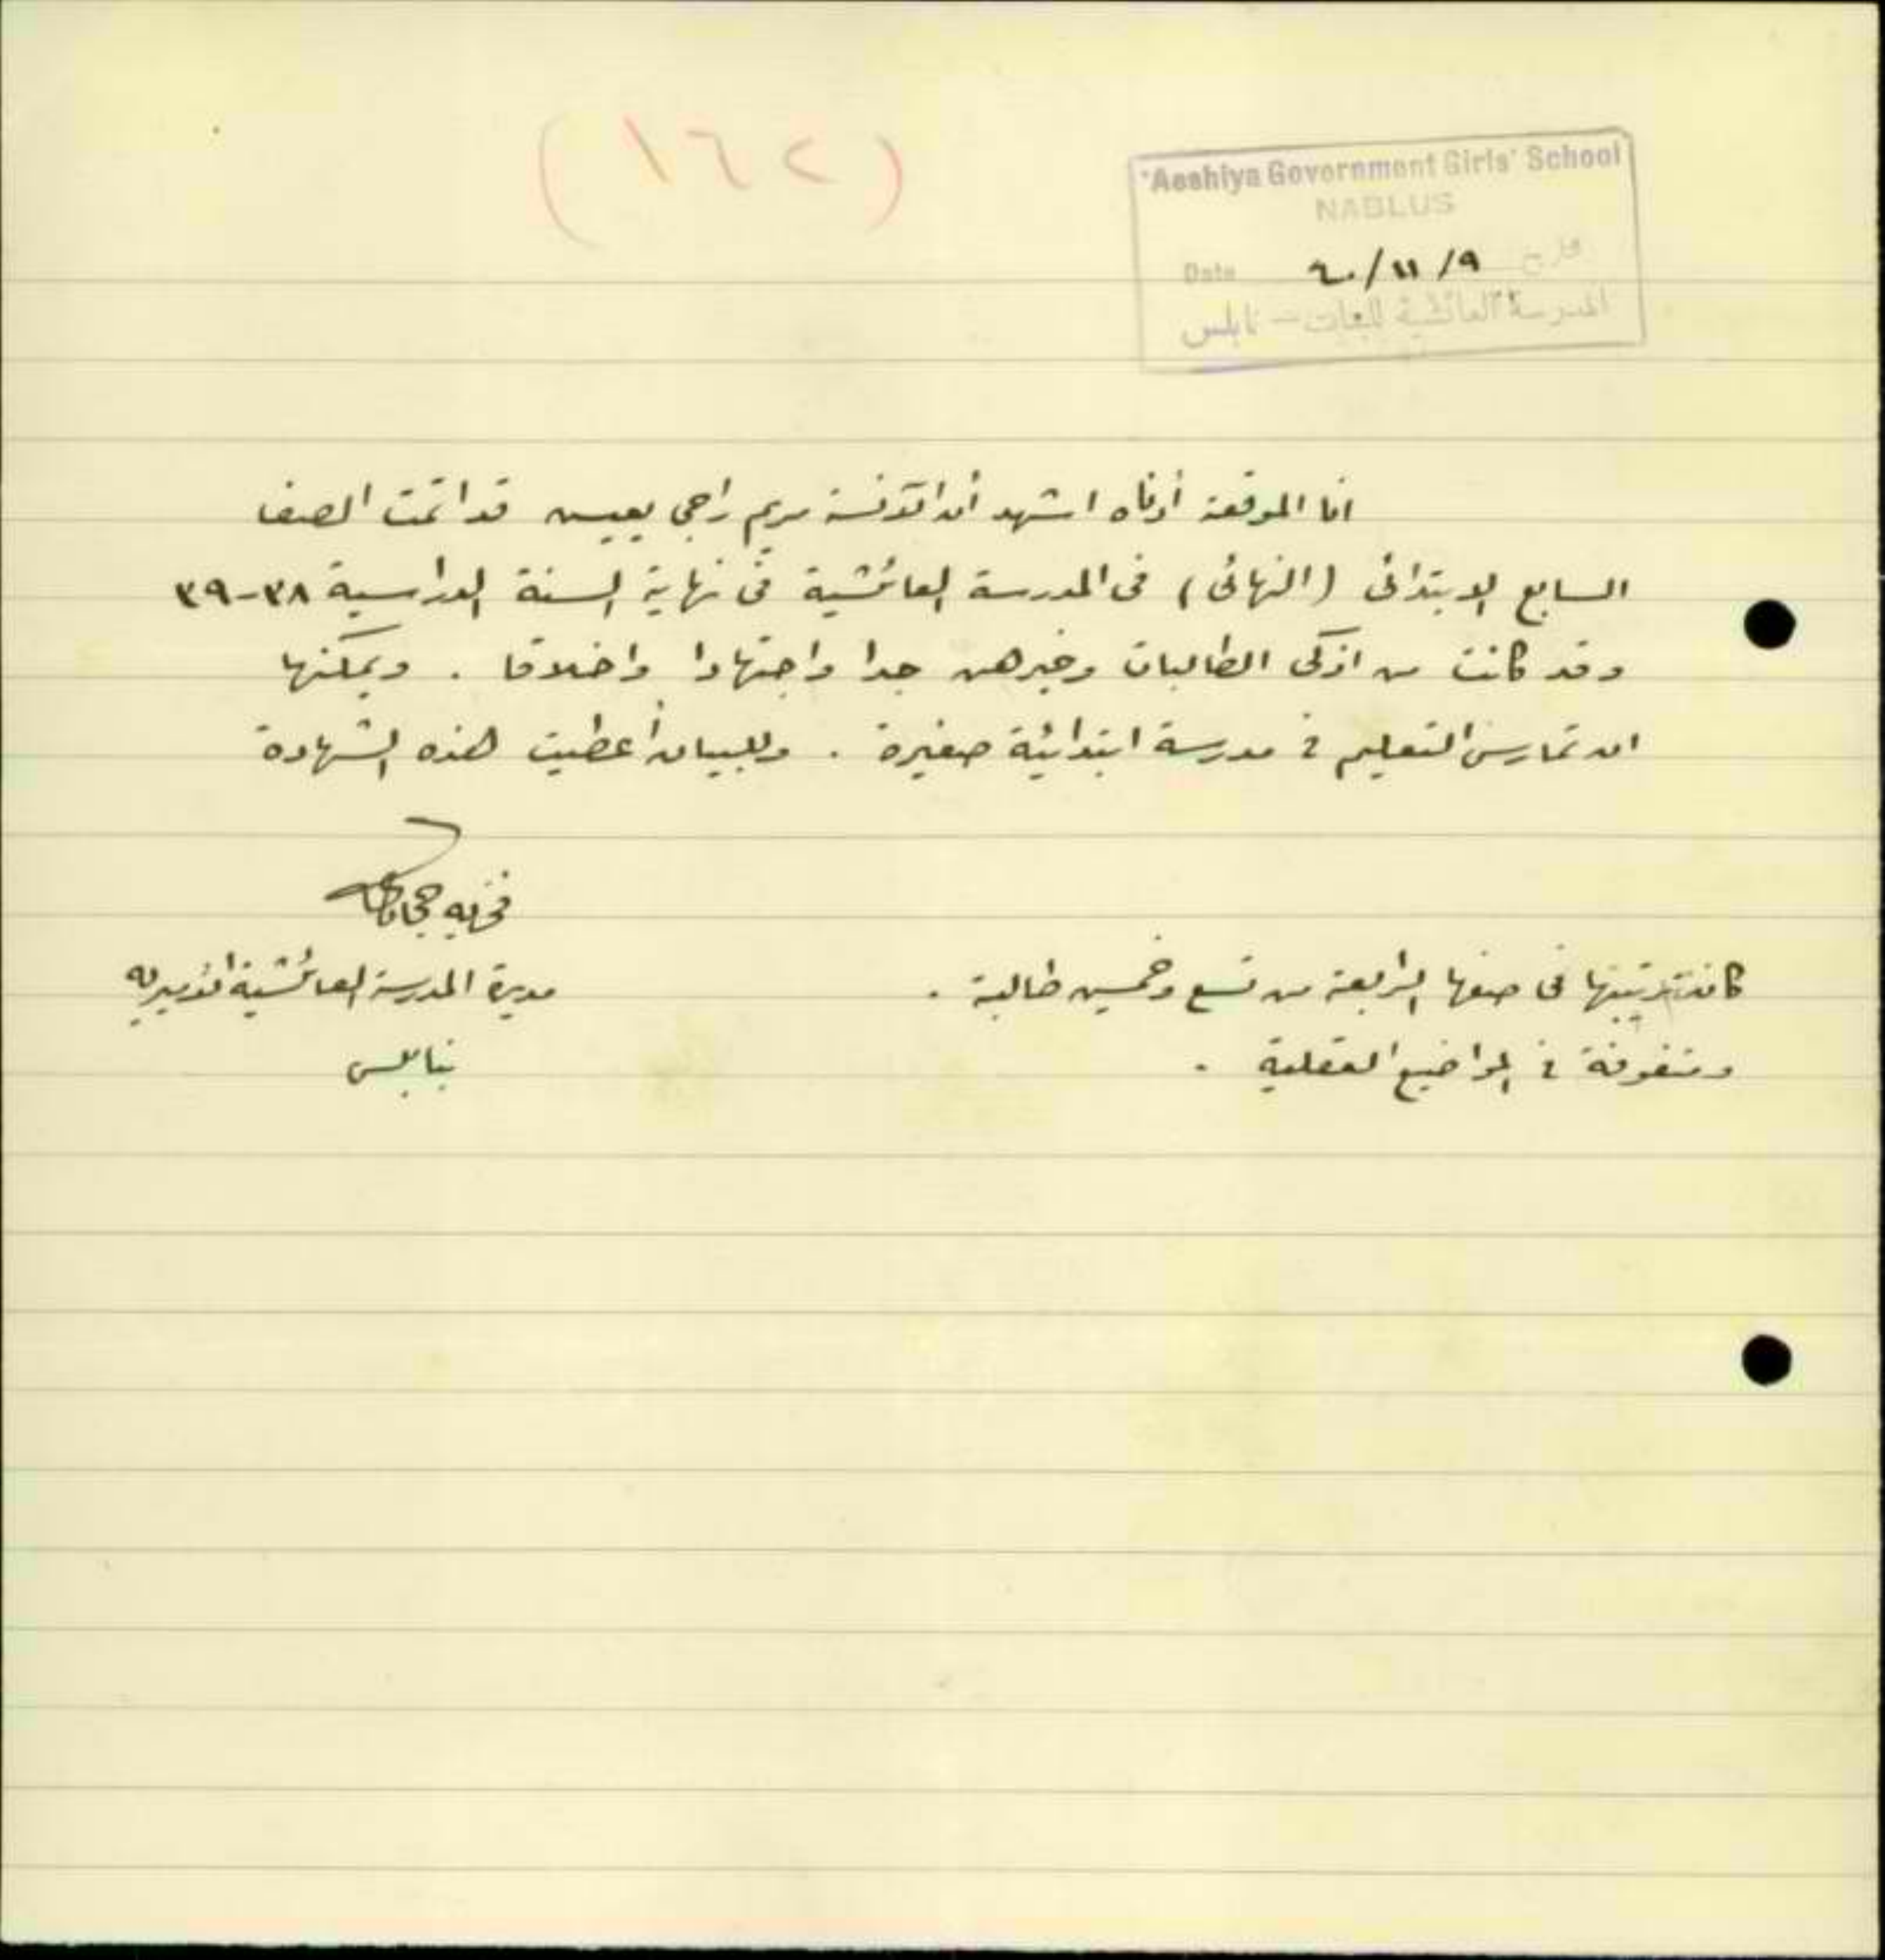 (١٦٢)
'Aeshiya Government Girls' School
NABLUS
Date ٩/١١/٤٠ تاريخ
المدرسة العائشية للبنات - نابلس
انا الموقعة أدناه اشهد أن الآنسة مريم راجي يعيش قد اتمت الصف
السابع الابتدائي (النهائي) في المدرسة العائشية في نهاية السنة الدراسية ٣٨-٣٩
وقد كانت من اذكى الطالبات وخيرهن جدا واجتهادا واخلاقا . ويمكنها
ان تمارس التعليم في مدرسة ابتدائية صغيرة . وللبيان أعطيت هذه الشهادة
فخريه
مديرة المدرسة العائشية الأميريه
بنابلس
كانت رتبتها في صفها الرابعة من تسع وخمسين طالبة .
ومتفوقة في المواضيع العقلية .